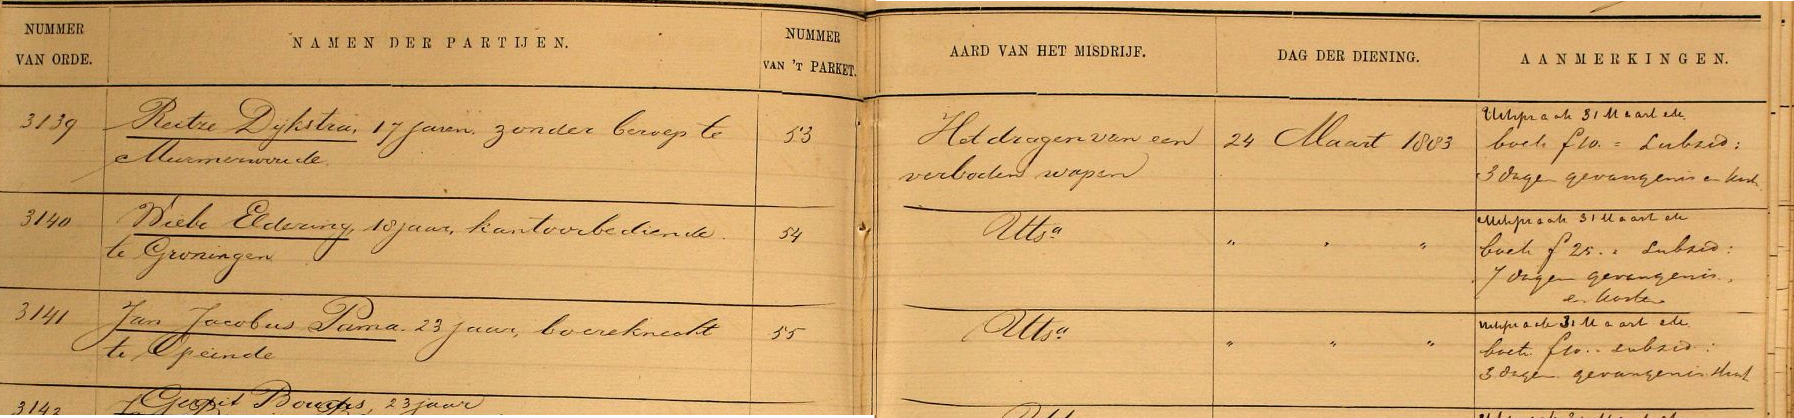 NUMMER
VAN ORDE.
NAMEN DER PARTIJEN.
NUMMER
VAN 'T PARKET.
AARD VAN HET MISDRIJF.
DAG DER DIENING.
AANMERKINGEN.
3139
Reitze Dijkstra, 17 jaren, zonder beroep te
Murmerwoude
53
Het dragen van een
verboden wapen
24 Maart 1883
Uitspraak 31 Maart
boete f 10. = Subsid:
3 dagen gevangenis en
3140
Wiebe Eldering, 18 jaar, kantoorbediende
te Groningen
54
Utsa
" " "
Uitspraak 31 Maart
boete f 25. = Subsid:
7 dagen gevangenis
en kosten
3141
Jan Jacobus Pama. 23 jaar, boereknecht
te Opeinde
55
Utsa
" " "
Uitspraak 31 Maart
boete f 10. = subsid:
3 dagen gevangenis
3142
Gerrit 23 jaar